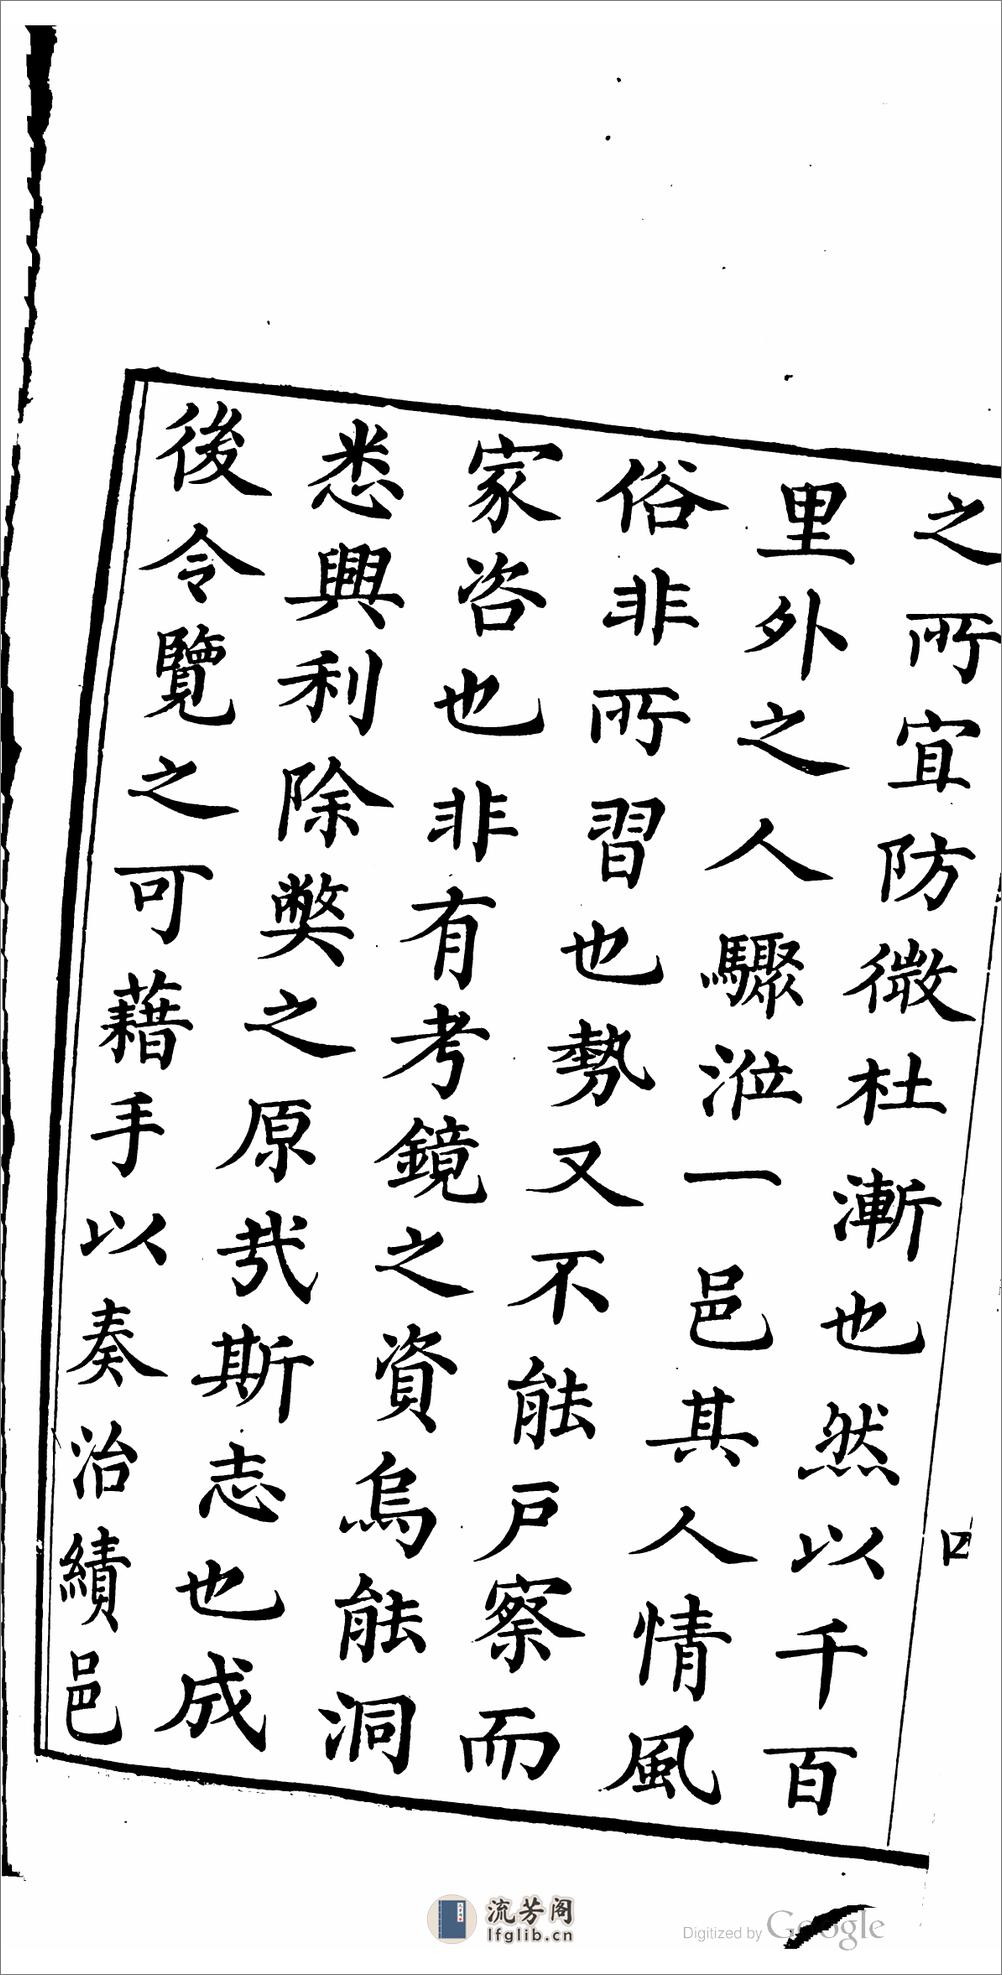 之所宜防微杜漸也然以千百
里外之人驟涖一邑其人情風
俗非所習也勢又不能户察而
家咨也非有考鏡之資烏能洞
悉興利除獘之原哉斯志也成
後令覽之可藉手以奏治績邑
流芳阁
lfglib.cn
Digitized by Google